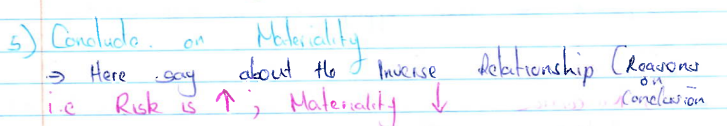 5) Conclude on Materiality
→ Here say about the Inverse Relationship (Reasons on Conclusion
i.e Risk is ↑ ; Materiality ↓